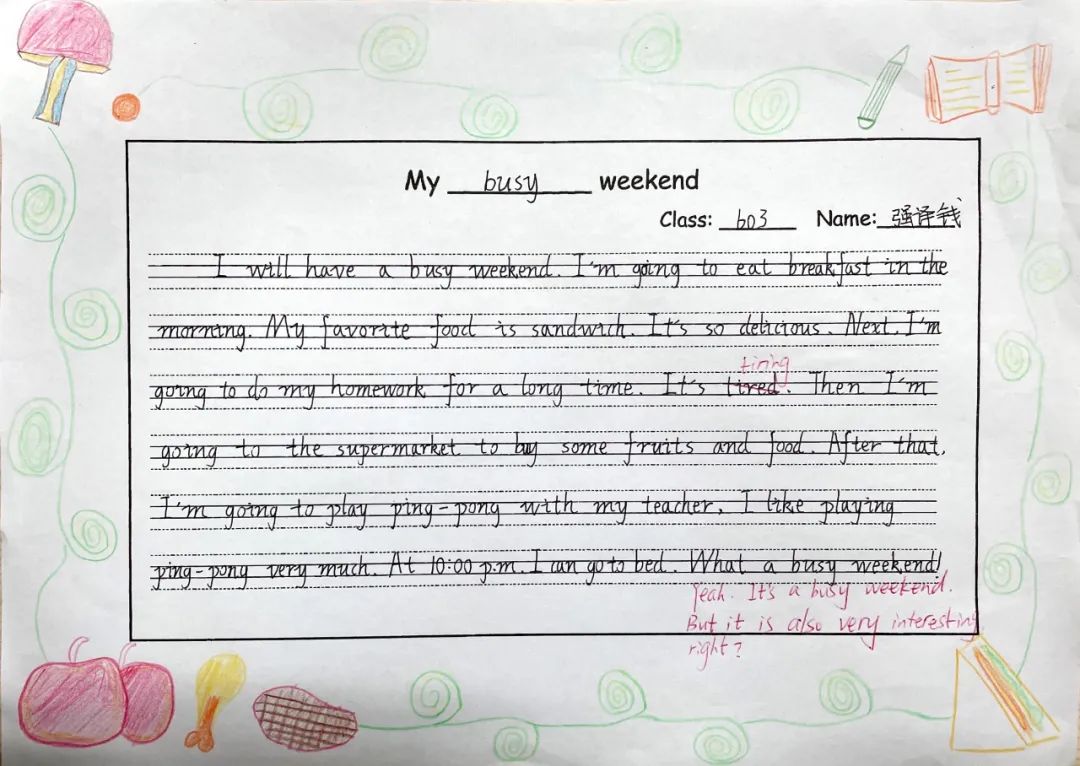 My busy weekend
Class: 603 Name: 强译钱
I will have a busy weekend. I'm going to eat breakfast in the
morning. My favorite food is sandwich. It's so delicious. Next, I'm
going to do my homework for a long time. It's tired. Then I'm
tiring
going to the supermarket to buy some fruits and food. After that,
I'm going to play ping-pong with my teacher. I like playing
ping-pong very much. At 10:00 p.m. I can go to bed. What a busy weekend!
Yeah. It's a busy weekend.
But it is also very interesting
right?